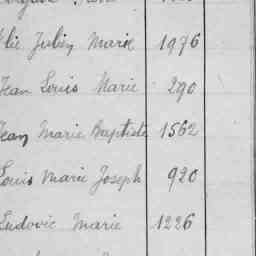 Julien Marie 1976
Jean Louis Marie 290
Jean Marie Baptiste 1562
Louis Marie Joseph 920
Ludovic Marie 1226